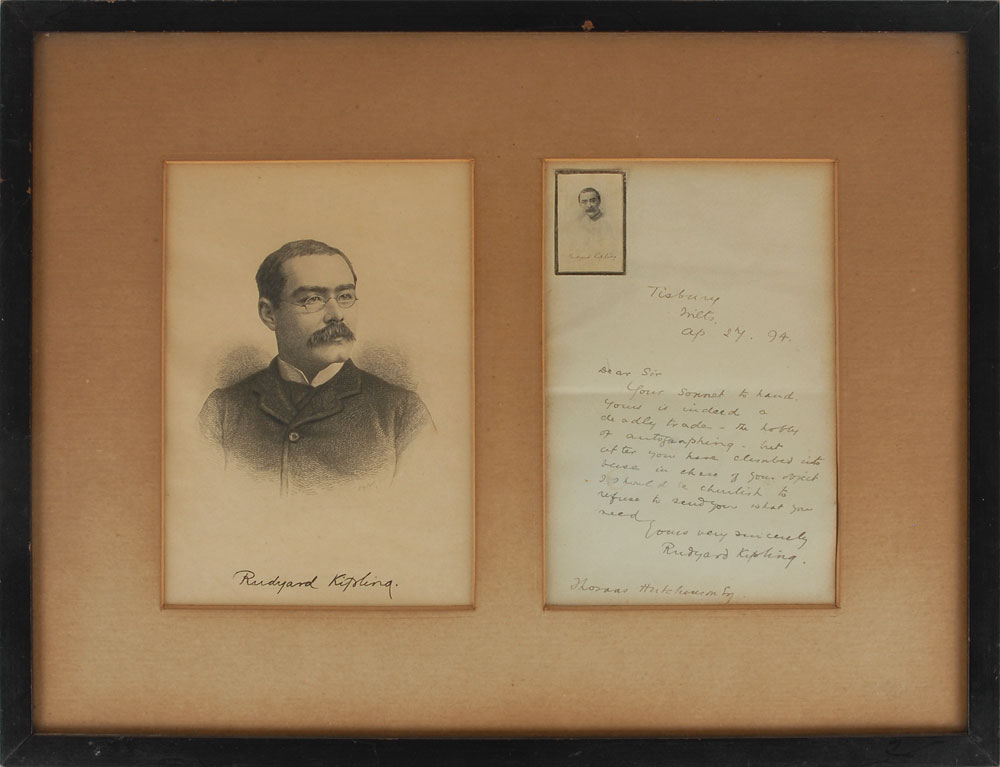 Rudyard Kipling.
Rudyard Kipling
Tisbury
Wilts.
Ap 27. 94.
Dear Sir
Your sonnet to hand.
Yours is indeed a
deadly trade – the hobby
of autographing – but
after you have climbed into
verse in chase of your object
I should be churlish to
refuse to send you what you
need
Yours very sincerely
Rudyard Kipling.
Thomas Hutchinson Esq.